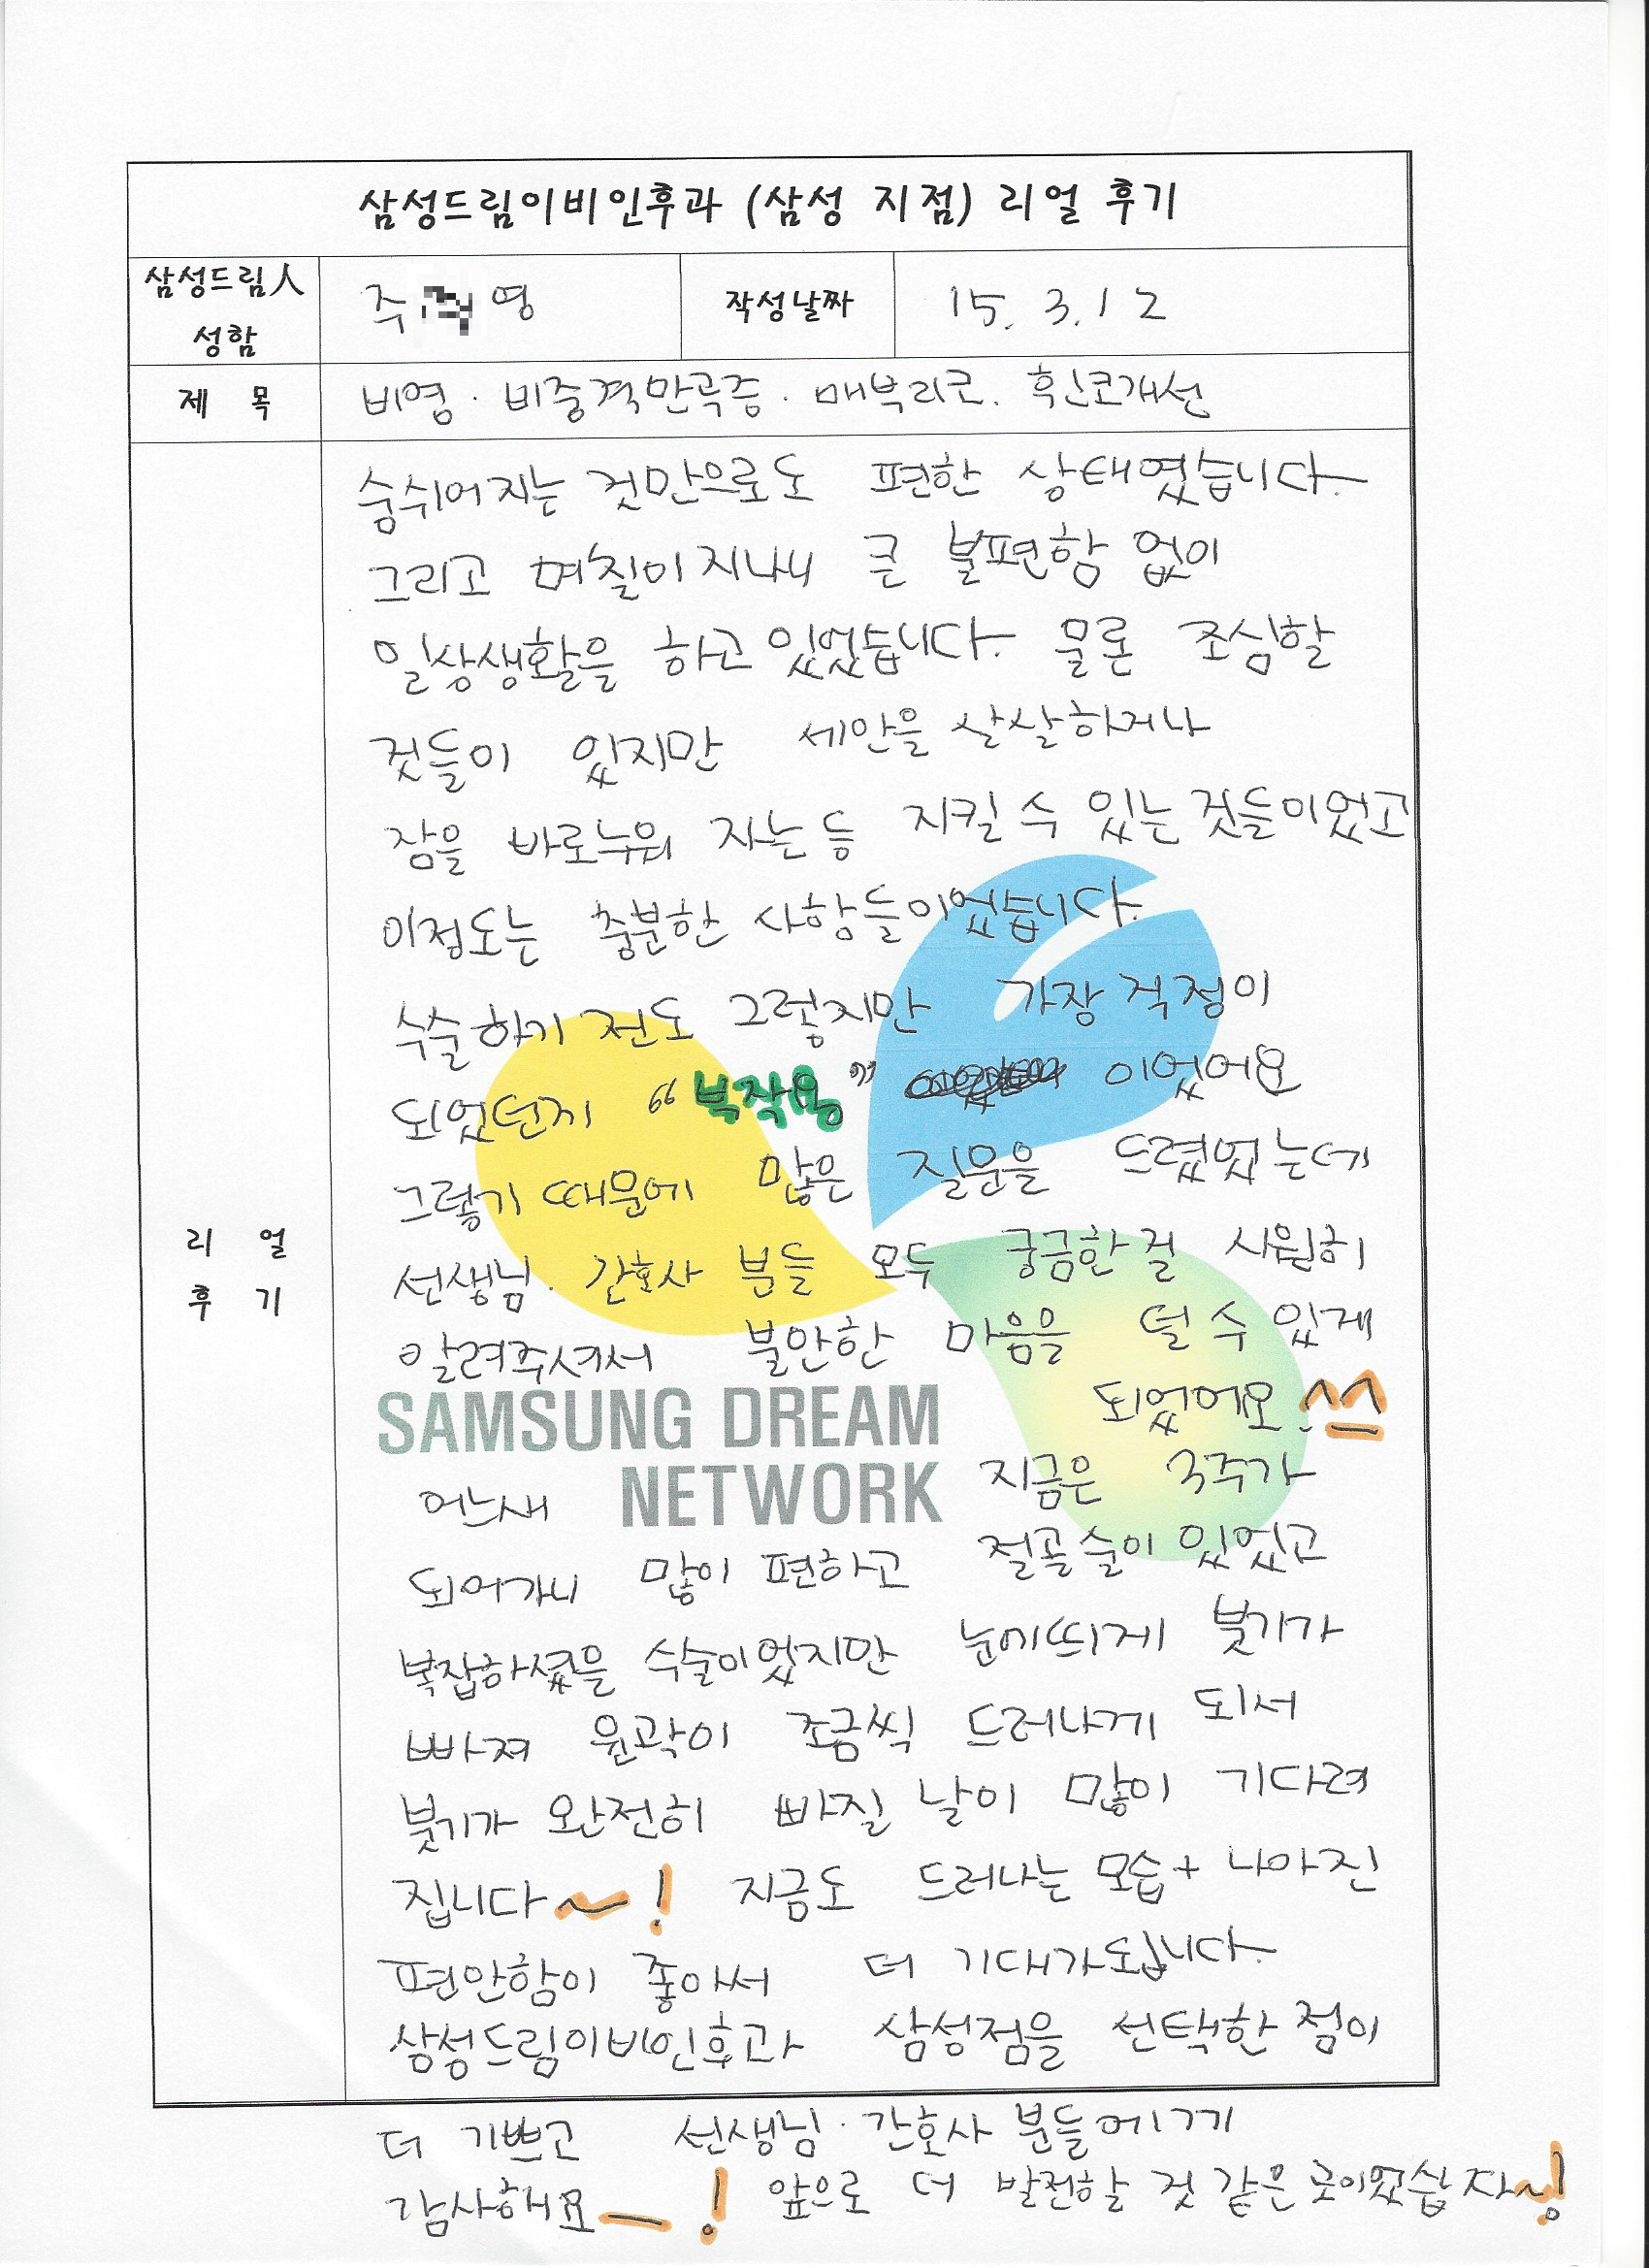 삼성드림이비인후과 (삼성 지점) 리얼 후기
삼성드림人 성함 주 영 작성날짜 15. 3. 12
제 목 비염 · 비중격만곡증 · 매부리코. 휜코개선
숨쉬어지는 것만으로도 편한 상태였습니다.
그리고 며칠이 지나니 큰 불편함 없이
일상생활을 하고 있었습니다. 물론 조심할
것들이 있지만 세안을 살살하거나
잠을 바로누워 자는 등 지킬 수 있는 것들이었고
이정도는 충분한 사항들이었습니다.
수술하기 전도 그렇지만 가장 걱정이
되었던지 "부작용" 이었어요
그렇기 때문에 많은 질문을 드렸었는데
선생님. 간호사 분들 모두 궁금한걸 시원히
알려주셔서 불안한 마음을 덜 수 있게
되었어요. ^^
SAMSUNG DREAM
NETWORK
어느새 지금은 3주가
되어가니 많이 편하고 절골술이 있었고
복잡하셨을 수술이었지만 눈에띄게 붓기가
빠져 윤곽이 조금씩 드러나게 되서
붓기가 완전히 빠질 날이 많이 기다려
집니다~! 지금도 드러나는 모습+ 나아진
편안함이 좋아서 더 기대가됩니다.
삼성드림이비인후과 삼성점을 선택한 점이
리 얼
후 기
더 기쁘고 선생님·간호사 분들에게
감사해요~! 앞으로 더 발전할 것 같은 곳이었습